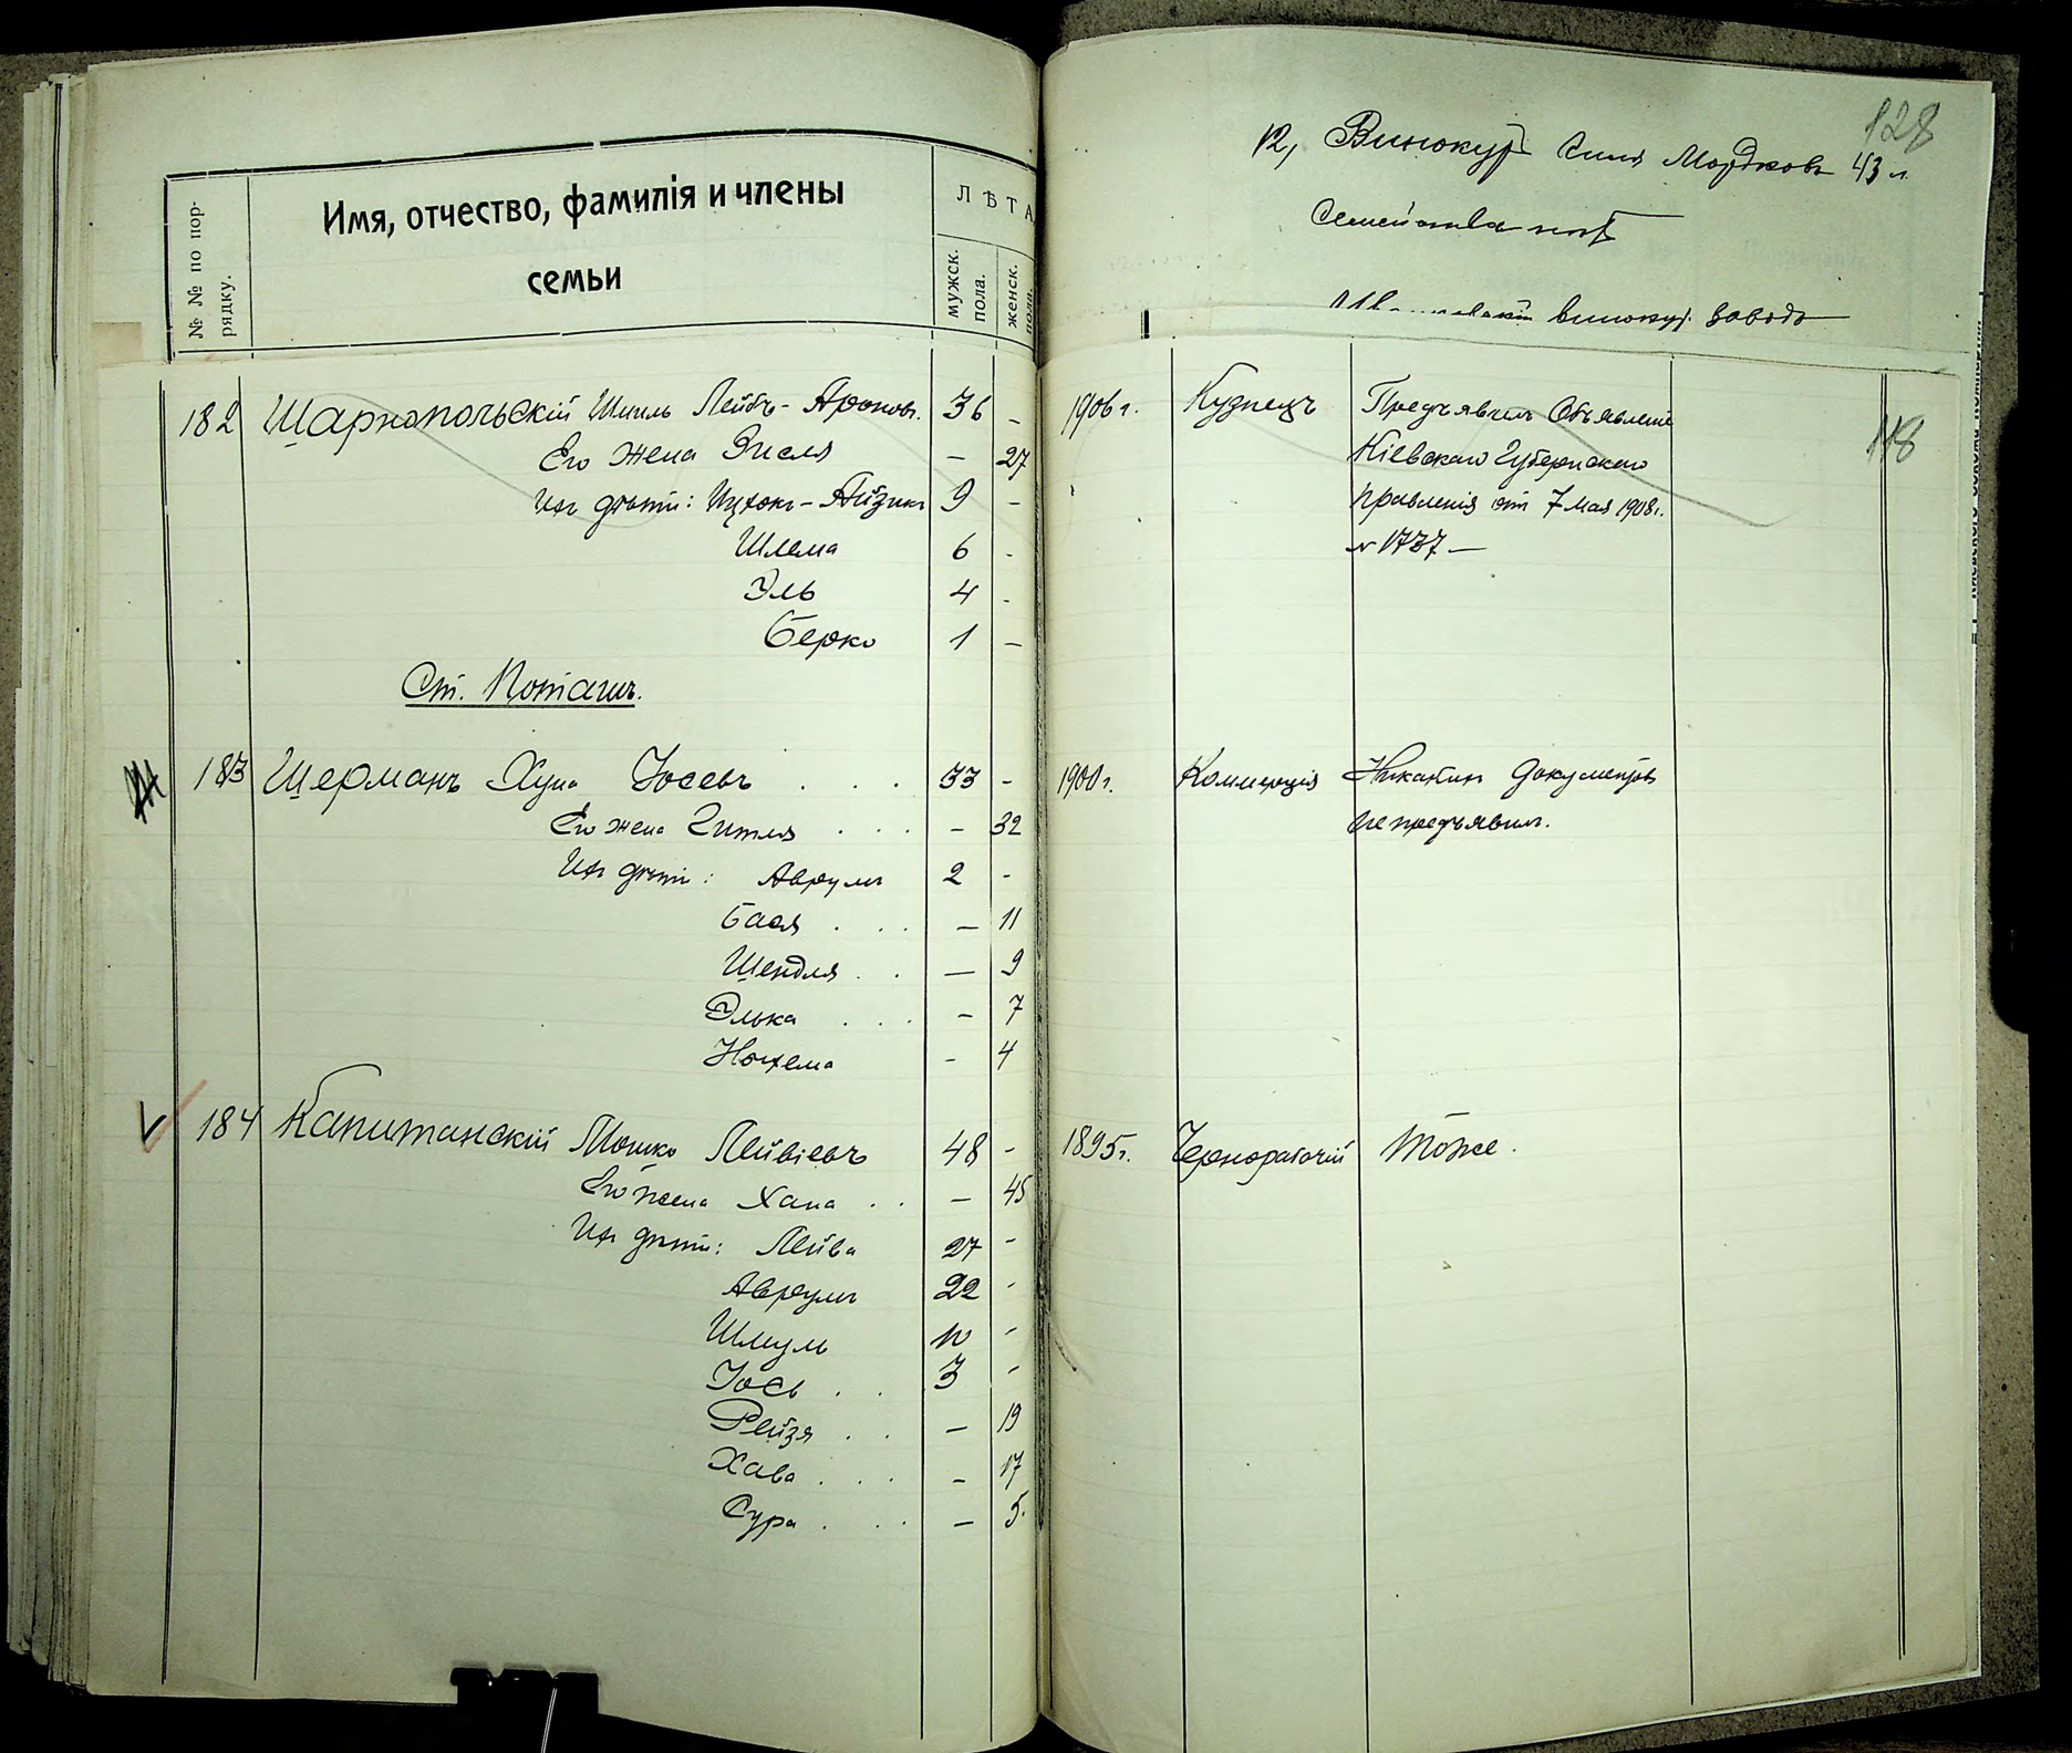 № № по пор-
рядку.
Имя, отчество, фамилія и члены
семьи
ЛѢТА
мужск.
пола.
женск.
пола.
182 Шарнопольскій Шмиль Лейбъ-Ароновъ. 36 -
Его жена Энеля - 27
Ихъ дѣти: Ицхокъ-Айзикъ 9 -
Шлема 6 -
Эль 4 -
Берко 1 -
Ст. Поташъ.
183 Шерманъ Хуна Іосевъ . . . 33 -
Его жена Гитля . . . - 32
Ихъ дѣти: Аврумъ 2 -
Бася . . . - 11
Шендля . . - 9
Элька . . . - 7
Нохема - 4
184 Капитанскій Мошко Лейвіевъ 48 -
Его жена Хана . . - 45
Ихъ дѣти: Лейва 27 -
Аврумъ 22 -
Шмуль 10 -
Іось . . 3 -
Рейзя . . - 19
Хава . . . - 17
Сура . . . - 5.
128
12, Винокуръ Мордковъ 43 л.
Семейства нѣтъ
винокур. заводъ
118
1906 г. Кузнецъ Предъявилъ Объявленіе
Кіевскаго Губернскаго
Правленія отъ 7 Мая 1908 г.
№ 1737 —
1900 г. Коммерція Никакихъ документовъ
не предъявилъ.
1895 г. Чернорабочій Тоже.